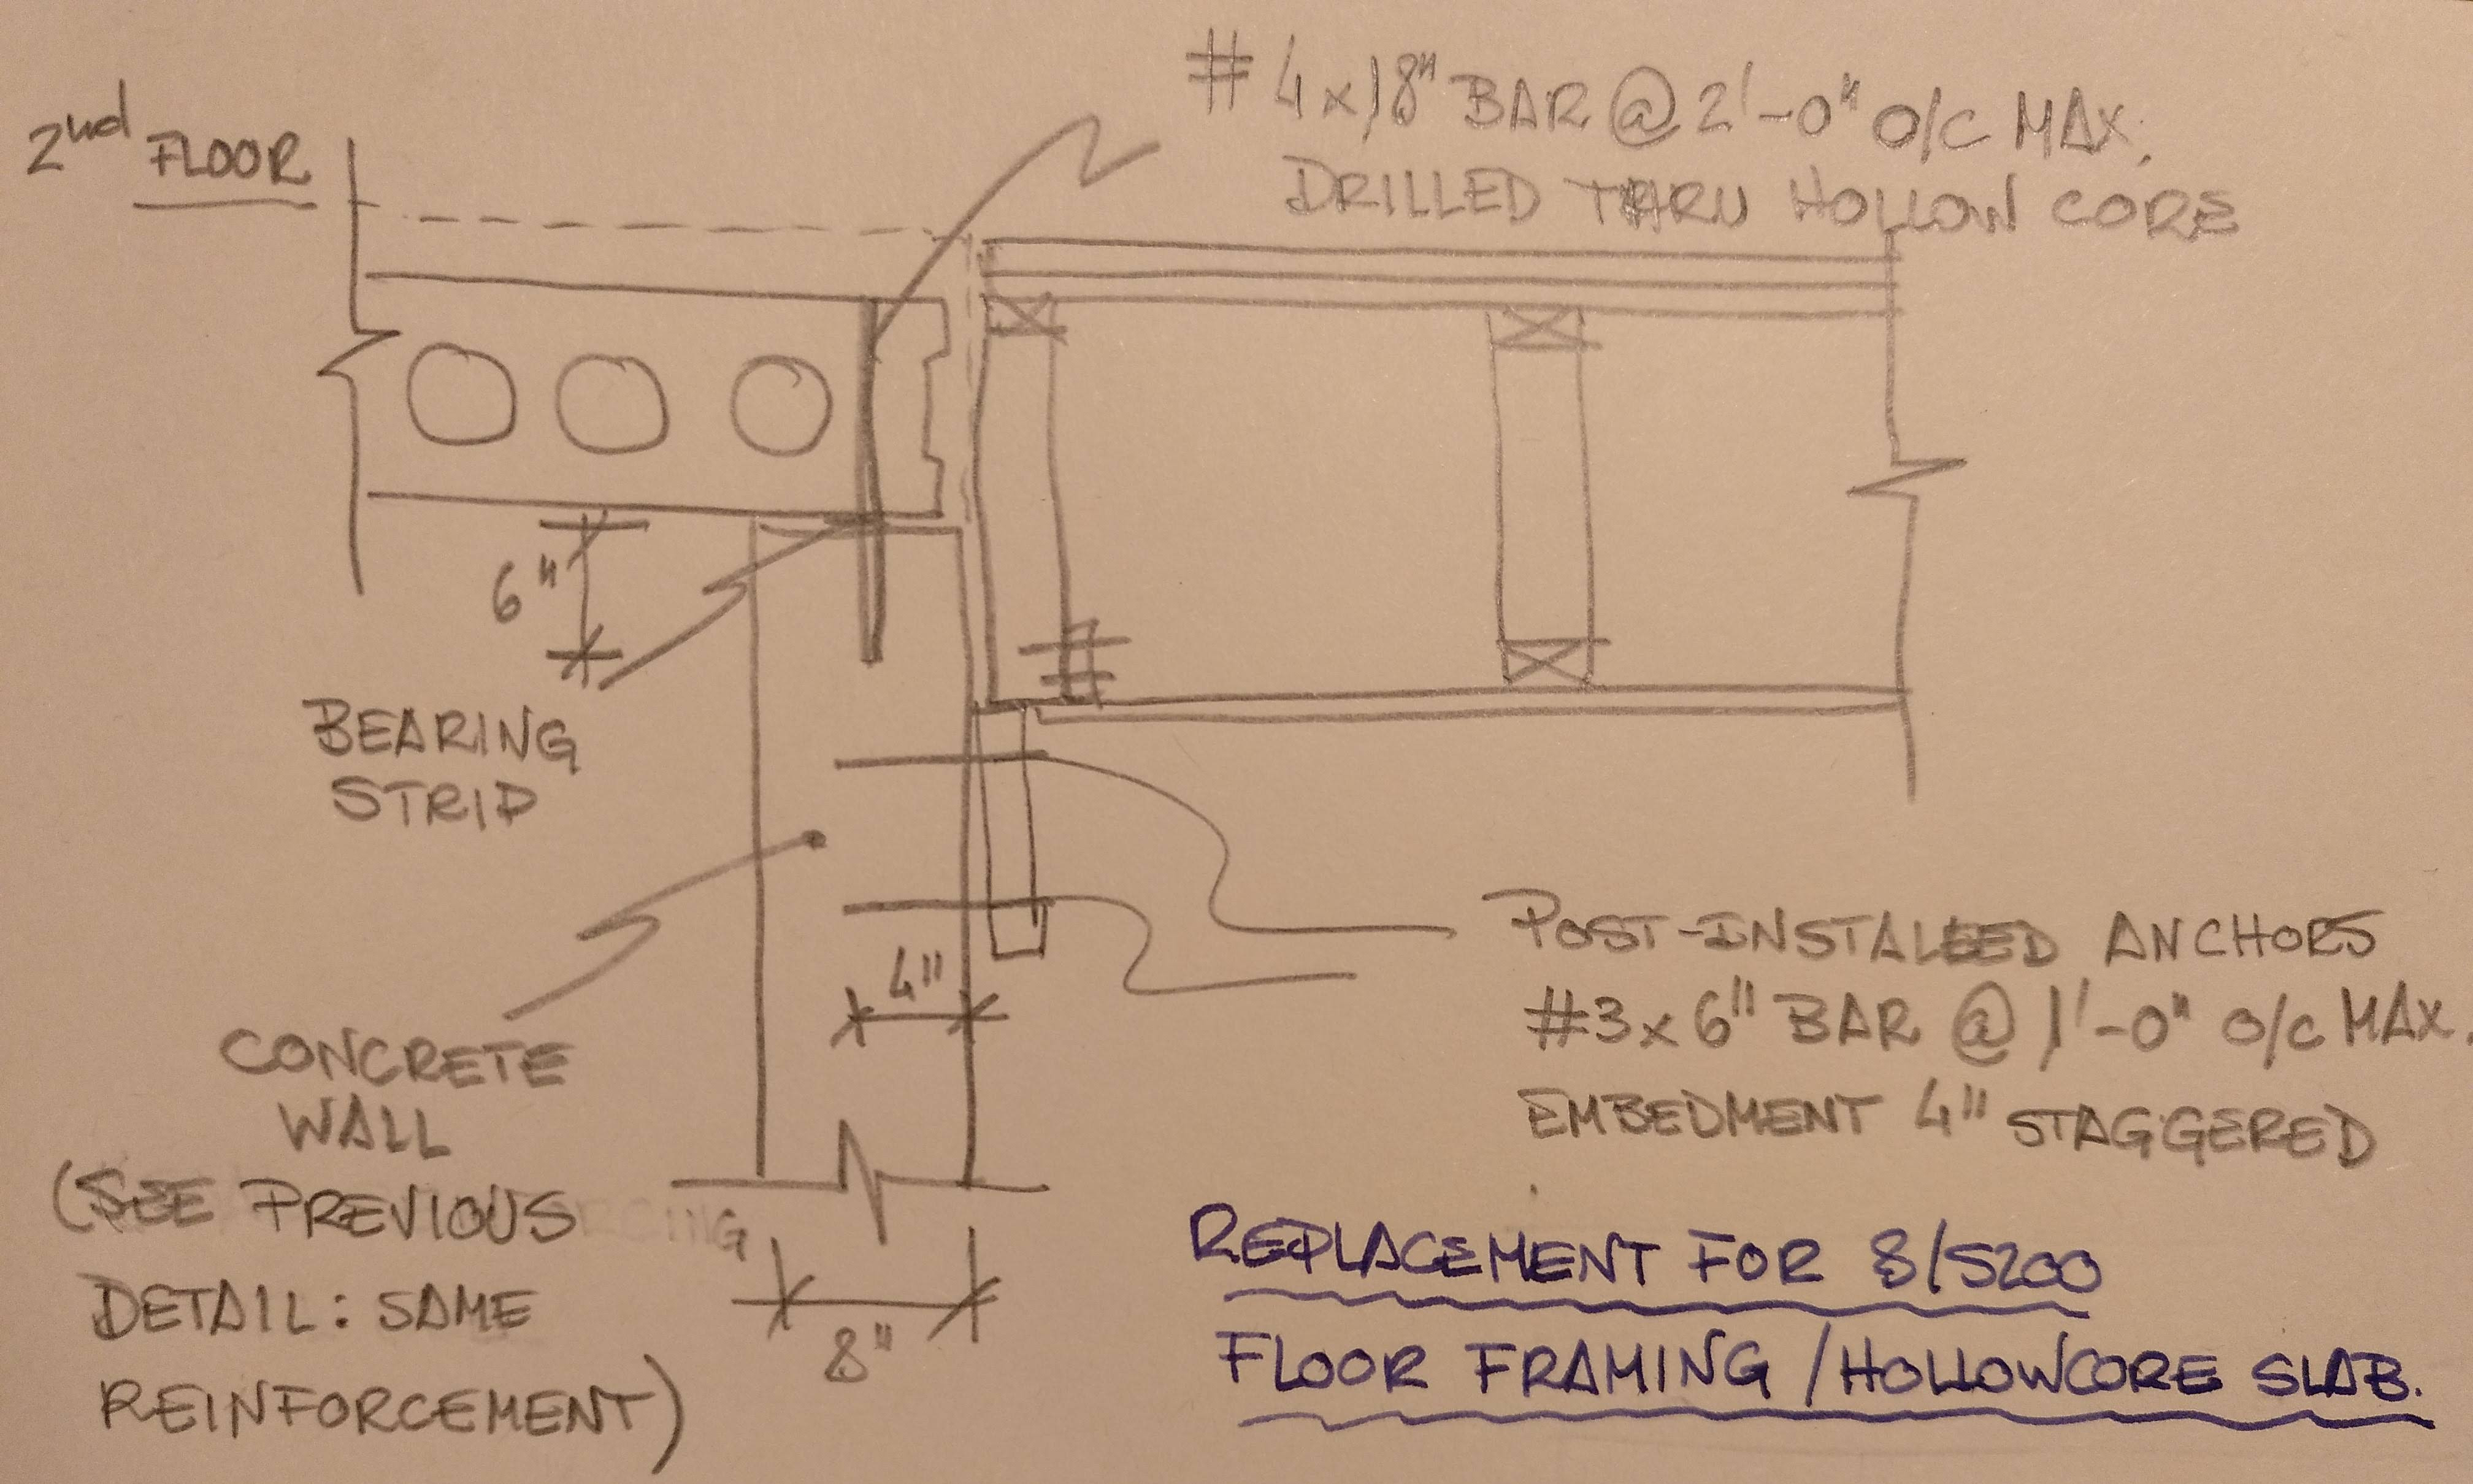 # 4x18" BAR @ 2'-0" O/C MAX.
DRILLED THRU HOLLOW CORE
2nd FLOOR
6"
BEARING
STRIP
4"
POST-INSTALLED ANCHORS
#3x6" BAR @ 1'-0" O/C MAX.
EMBEDMENT 4" STAGGERED
CONCRETE
WALL
(SEE PREVIOUS
DETAIL: SAME
REINFORCEMENT)
8"
REPLACEMENT FOR 8/S200
FLOOR FRAMING /HOLLOWCORE SLAB.